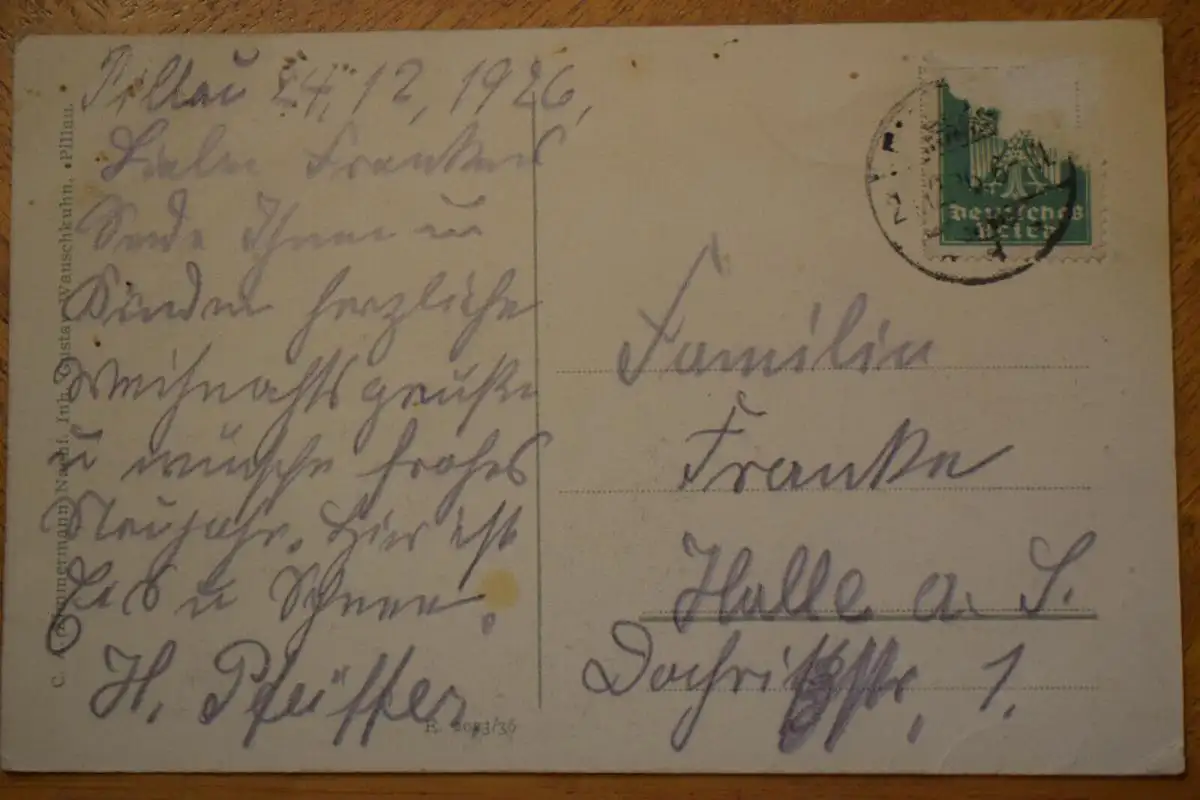 Pillau 24.12.1926,
Liebe Frankes
Sende Ihnen u
Kinder herzliche
Weihnachtsgrüße
u wünsche frohes
Neujahr. Hier ist
Eis u Schnee.
H. Pfeiffer
Deutsches
Reich
Familie
Franke
Halle a. S.
str. 1.
C. Zimmermann Nachf. Inh. Gustav Wauschkuhn, Pillau.